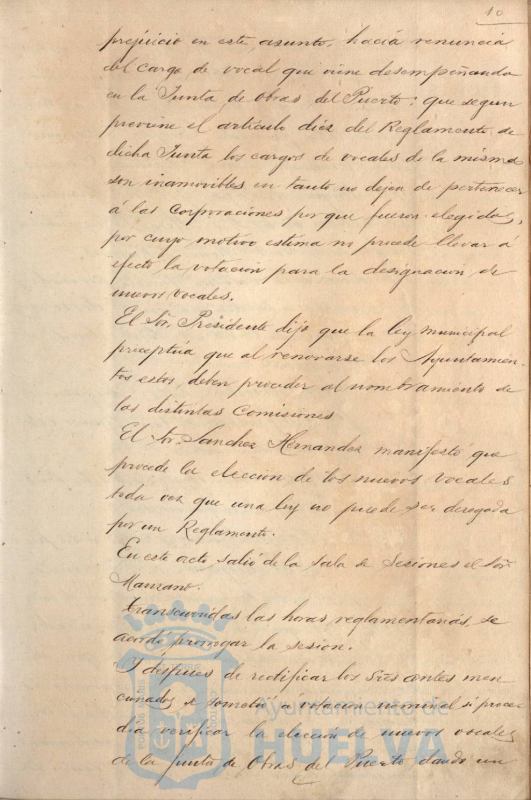 10
prejuicio en este asunto, hacía renuncia
del cargo de vocal que viene desempeñando
en la Junta de Obras del Puerto: que segun
previene el artículo diez del Reglamento de
dicha Junta los cargos de vocales de la misma
son inamovibles en tanto no dejen de pertenecer
á las Corporaciones por que fueron elegidos,
por cuyo motivo estima no procede llevar á
efecto la votación para la designación de
nuevos vocales.
El Sor. Presidente dijo que la ley municipal
preceptúa que al renovarse los Ayuntamien-
tos estos, deben proceder al nombramiento de
las distintas Comisiones
El Sr. Sanchez Hernandez manifestó que
procede la elección de los nuevos vocales
toda vez que una ley no puede ser derogada
por un Reglamento.
En este acto salió de la sala de Sesiones el Sor.
Manzano.
Transcurridas las horas reglamentarias, se
acordó prorrogar la sesión.
Y despues de rectificar los Sres antes men-
cionados se sometió á votacion nominal si proce-
día verificar la elección de nuevos vocales
de la junta de Obras del Puerto dando un
Ayuntamiento de
HUELVA